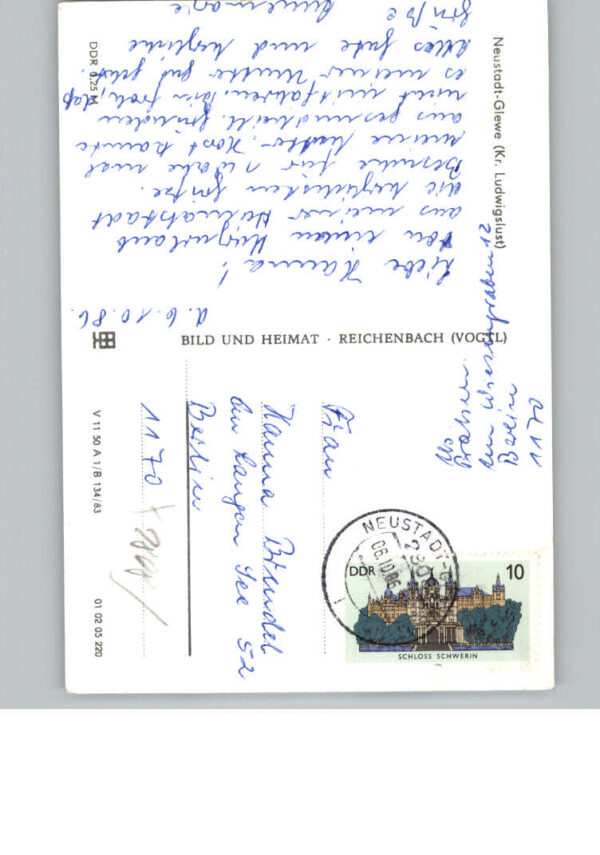 Neustadt-Glewe (Kr. Ludwigslust)
d. 6.10.86
Liebe Hanna!
Von einem Kurzurlaub
aus meiner Heimatstadt
die herzlichsten Grüße.
Besuche für 1 Woche mal
meine Mutter. Horst konnte
aus gesundheitl. Gründen
nicht mitfahren. Bin froh, daß
es meiner Mutter gut geht.
Alles Gute und herzliche
Grüße
Annemarie
DDR 0,25 M
BILD UND HEIMAT · REICHENBACH (VOGTL)
V 11 50 A 1/B 134/83
01 02 05 220
Abs.
Am Wiesengraben 12
Berlin
1170
Frau
Hanna
Am Langen See 52
Berlin
1170
NEUSTADT-G
06.10.86
DDR 10
SCHLOSS SCHWERIN